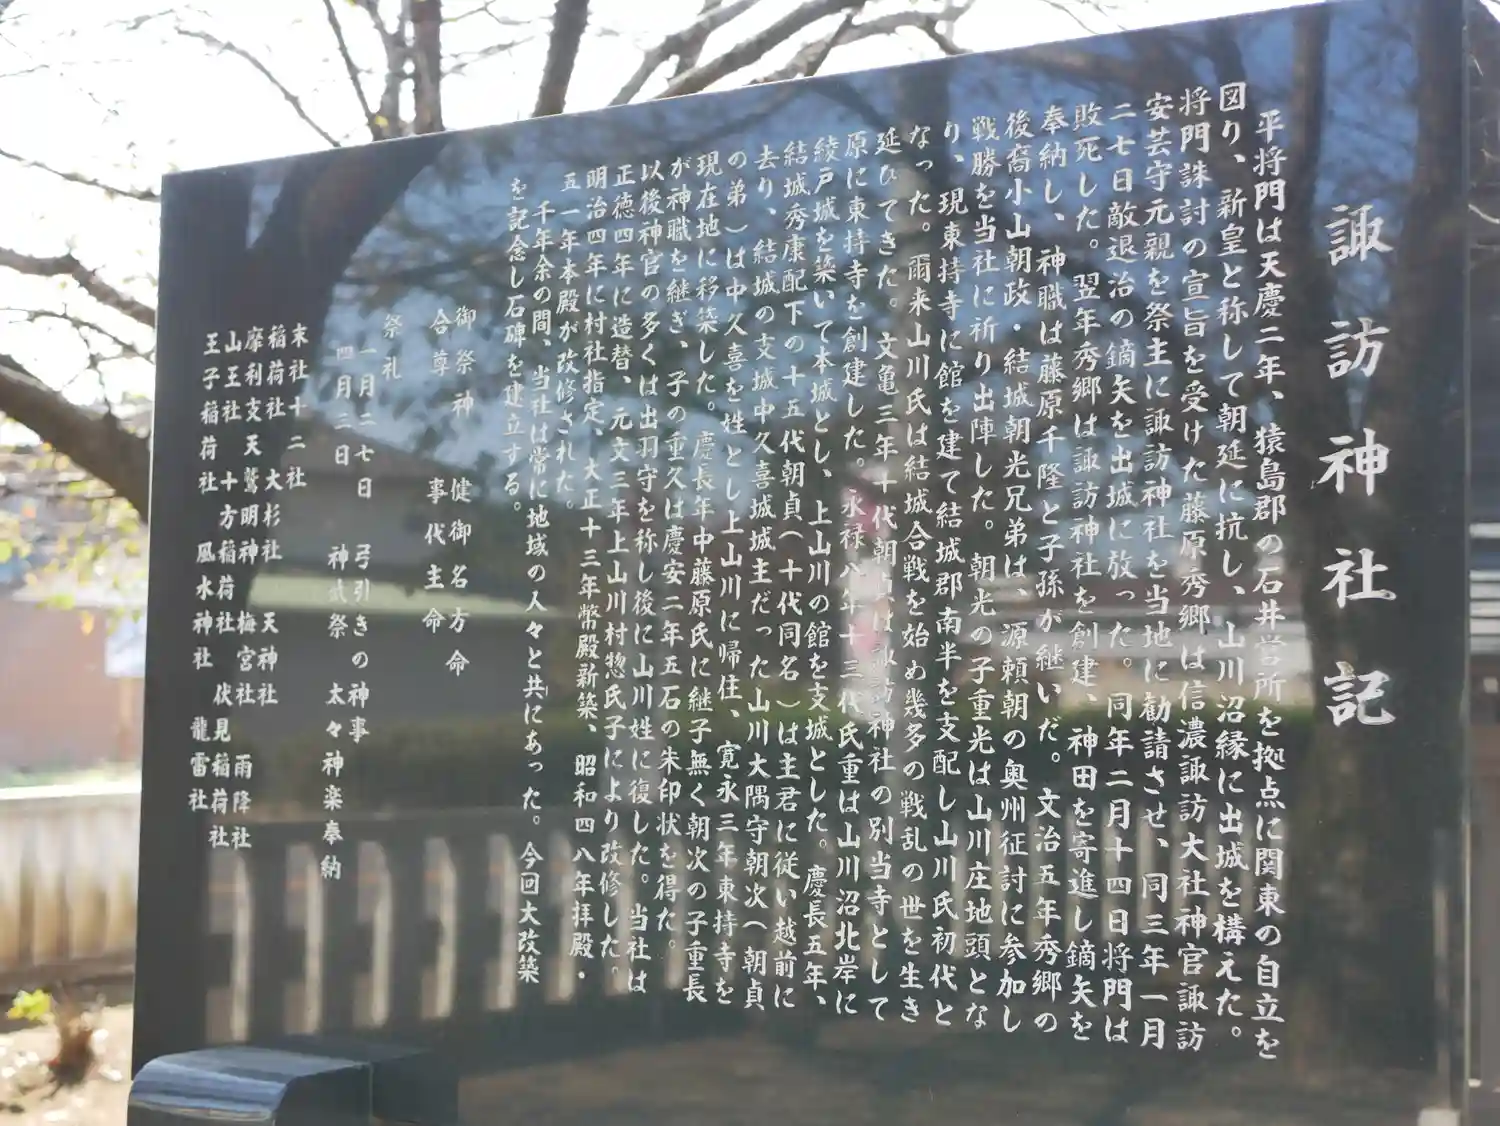 諏訪神社記
平将門は天慶二年、猿島郡の石井営所を拠点に関東の自立を
図り、新皇と称して朝廷に抗し、山川沼縁に出城を構えた。
将門誅討の宣旨を受けた藤原秀郷は信濃諏訪大社神官諏訪
安芸守元親を祭主に諏訪神社を当地に勧請させ、同三年一月
二七日敵退治の鏑矢を出城に放った。同年二月十四日将門は
敗死した。翌年秀郷は諏訪神社を創建、神田を寄進し鏑矢を
奉納し、神職は藤原千隆と子孫が継いだ。文治五年秀郷の
後裔小山朝政・結城朝光兄弟は、源頼朝の奥州征討に参加し
戦勝を当社に祈り出陣した。朝光の子重光は山川庄地頭とな
り、現東持寺に館を建て結城郡南半を支配し山川氏初代と
なった。爾来山川氏は結城合戦を始め幾多の戦乱の世を生き
延びてきた。文亀三年十代朝貞は諏訪神社の別当寺として
原に東持寺を創建した。永禄八年十三代氏重は山川沼北岸に
綾戸城を築いて本城とし、上山川の館を支城とした。慶長五年、
結城秀康配下の十五代朝貞（十代同名）は主君に従い越前に
去り、結城の支城中久喜城城主だった山川大隅守朝次（朝貞
の弟）は中久喜を姓とし上山川に帰住、寛永三年東持寺を
現在地に移築した。慶長年中藤原氏に継子無く朝次の子重長
が神職を継ぎ、子の重久は慶安二年五石の朱印状を得た。
以後神官の多くは出羽守を称し後に山川姓に復した。当社は
正徳四年に造替、元文三年上山川村惣氏子により改修した。
明治四年に村社指定、大正十三年幣殿新築、昭和四八年拝殿・
五一年本殿が改修された。
千年余の間、当社は常に地域の人々と共にあった。今回大改築
を記念し石碑を建立する。
御祭神 健御名方命
合尊 事代主命
祭礼
一月二七日 弓引きの神事
四月三日 神武祭 太々神楽奉納
末社十二社
稲荷社 大杉社 天神社 雨降社
摩利支天鷲明神 梅宮社 伏見稲荷社
山王社 十方稲荷社
王子稲荷社 風水神社 龍雷社